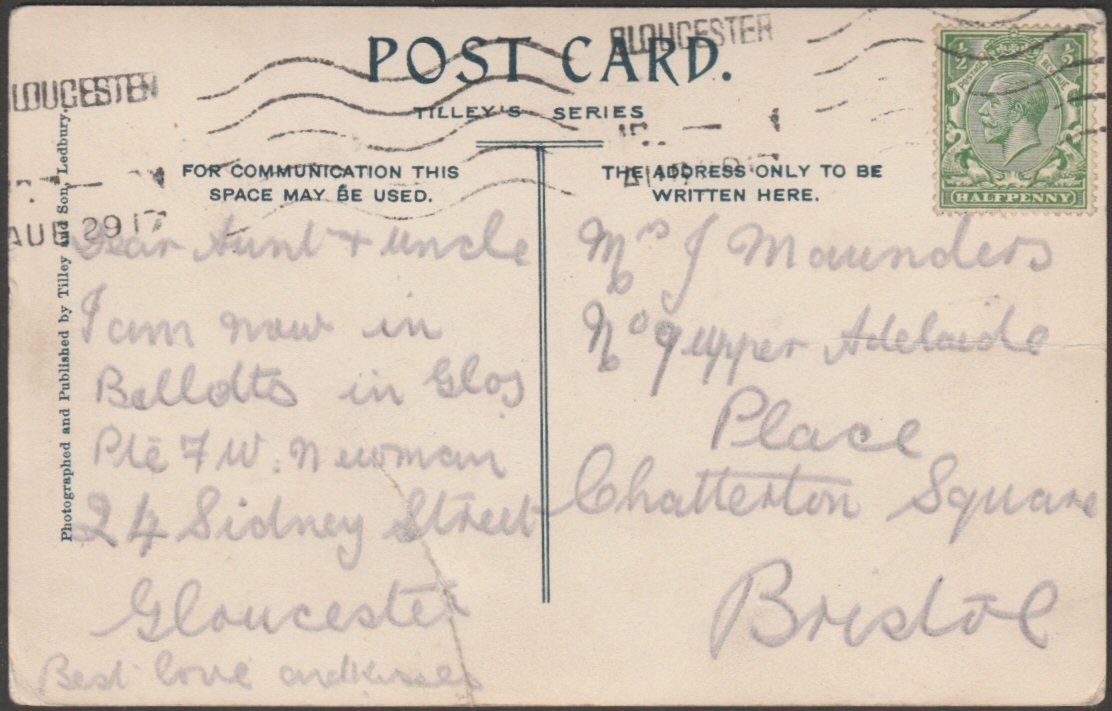 POST CARD.
TILLEY'S SERIES
GLOUCESTER
GLOUCESTER
AUG 29 17
½ POSTAGE REVENUE ½
HALFPENNY
FOR COMMUNICATION THIS
SPACE MAY BE USED.
Dear Aunt + Uncle
I am now in
Belldts in Glos
Pte F W. Newman
24 Sidney Street
Gloucester
Best love and kisses
THE ADDRESS ONLY TO BE
WRITTEN HERE.
Mrs J Maunders
No 9 upper Adelaide
Place
Chatterton Square
Bristol
Photographed and Published by Tilley and Son, Ledbury.